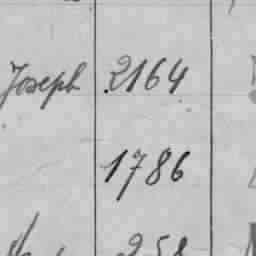 Joseph 2164
1786
258